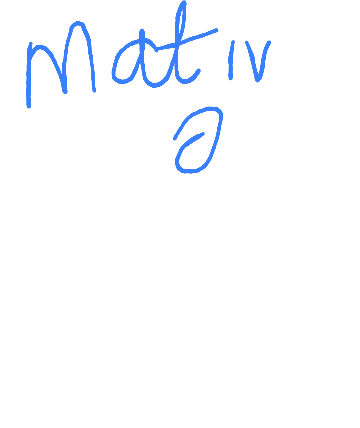 Mativ
a